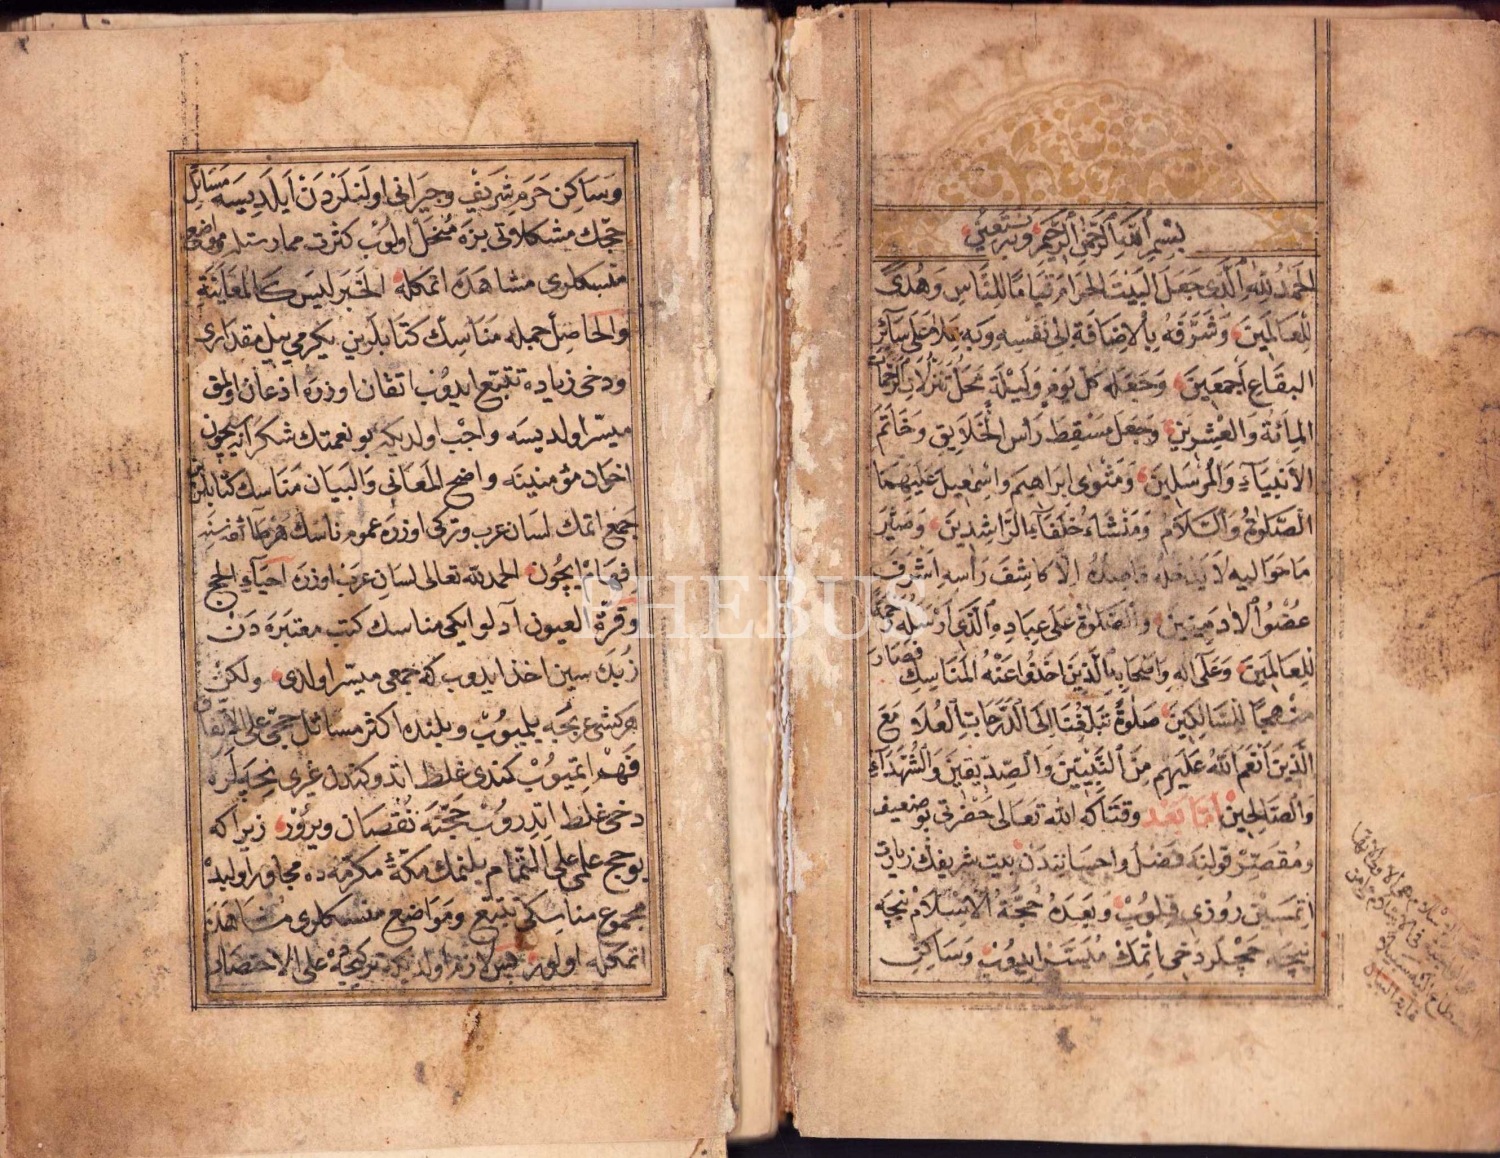 بسم الله الرحمن الرحيم وبه نستعين
الحمد لله الذى جعل البيت الحرام قياما للناس وهدى
للعالمين وشرفه بالاضافة الى نفسه وبه على سائر
البقاع اجمعين وجعله كل يوم وليلة محل تنزلات الرحمات
المائة والعشرين وجعل مسقط رأس الخلايق وخاتم
الانبياء والمرسلين ومثوى ابراهيم واسمعيل عليهما
الصلوة والسلام ومنشاء خلفاء الراشدين وصير
ما حواليه لا يدخله الا كاشف رأسه اشرف
عضو الادميين والصلوة على عباده الذى ارسله رحمة
للعالمين وعلى اله واصحابه الذين اخذوا عنه المناسك فصار
منهجا للسالكين صلوة تبلغنا الى الدرجات العلا مع
الذين انعم الله عليهم من النبيين والصديقين والشهداء
والصالحين اما بعد وقتاكه الله تعالى حضرتى بو ضعيف
ومقصر قولنه فضل واحسانندن بيت شريفك زيارت
اتمسين روزى قيلوب وبعده حجة الاسلام نيجه
نيجه حجلر دخى اتمك ميسر ايدوب وساكن
وساكن حرم شريف وجيرانى اولنلردن ايلديسه مسائل
حجك مشكلاتى بزه منحل اولوب كثرت ممارستله مواضع
منسكلرى مشاهده اتمكله الخبر ليس كالمعاينة
والحاصل جمله مناسك كتابلرين يكرمى ييل مقدارى
ودخى زياده تتبع ايدوب اتقان اوزره اذعان اولمق
ميسر اولديسه واجب اولديكه بو نعمتك شكرانه سيچون
اخوان مؤمنينه واضح المعانى والبيان مناسك كتابلرين
جمع اتمك لسان عرب وتركى اوزره عموم ناسك
افهام ايچون الحمد لله تعالى لسان عرب اوزره احياء الحج
وقرة العيون ادلو ايكى مناسك كتب معتبره دن
زبده سين اخذ ايدوب كه جمعى ميسر اولدى ولكن
هر كشى عربجه بلميوب وبلنده اكثر مسائل حجى على الاتفاق
فهم اتميوب كندى غلط ايدو كندن غيرى نيجه لره
دخى غلط اتدروب حجنه نقصان ويرر زيرا كه
بو حج علمى على التمام بلنمك مكه مكرمه ده مجاور اولوب
مجموع مناسكى تتبع ومواضع منسكلرى مشاهده
اتمكله اولور پس لازم اولديكه تركيجه على الاختصار
PHEBUS